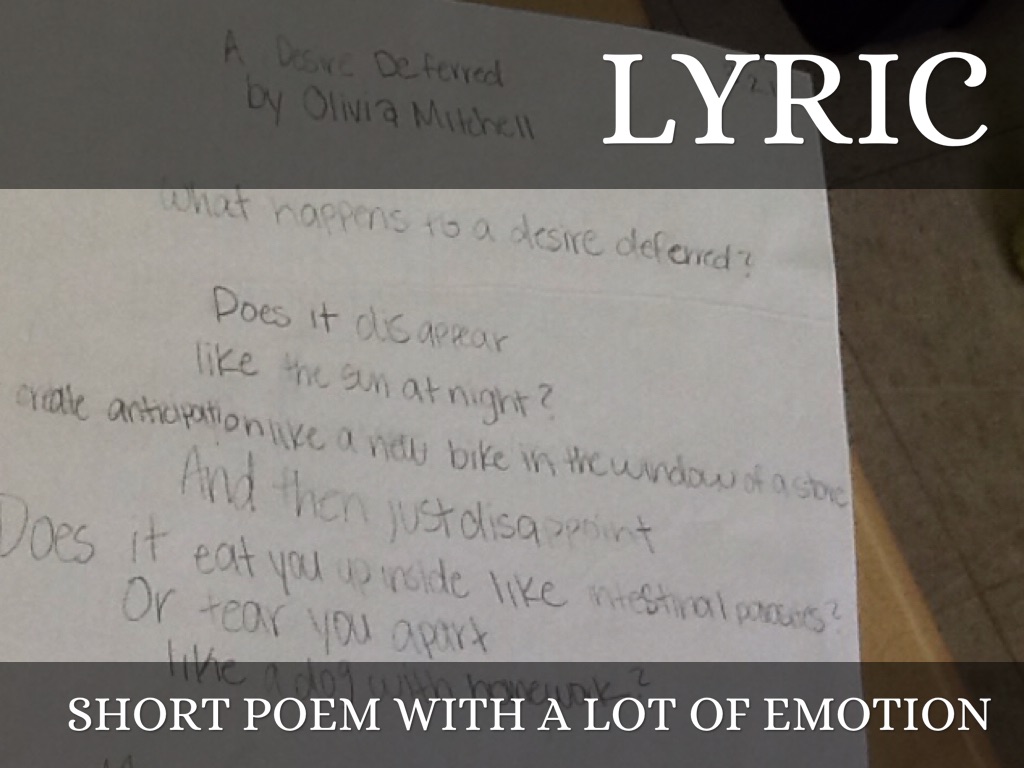 LYRIC
A Desire Deferred
by Olivia Mitchell
What happens to a desire deferred?
Does it disappear
like the sun at night?
create anticipation like a new bike in the window of a store
And then just disappoint
Does it eat you up inside like intestinal parasites?
Or tear you apart
like a dog with homework?
SHORT POEM WITH A LOT OF EMOTION